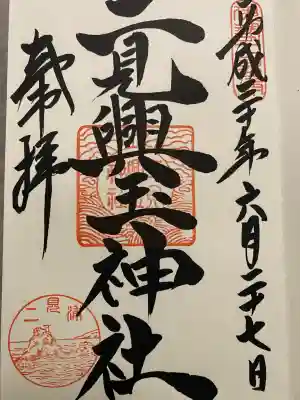 平成三十年六月二十七日
二見興玉神社
奉拝
二見浦